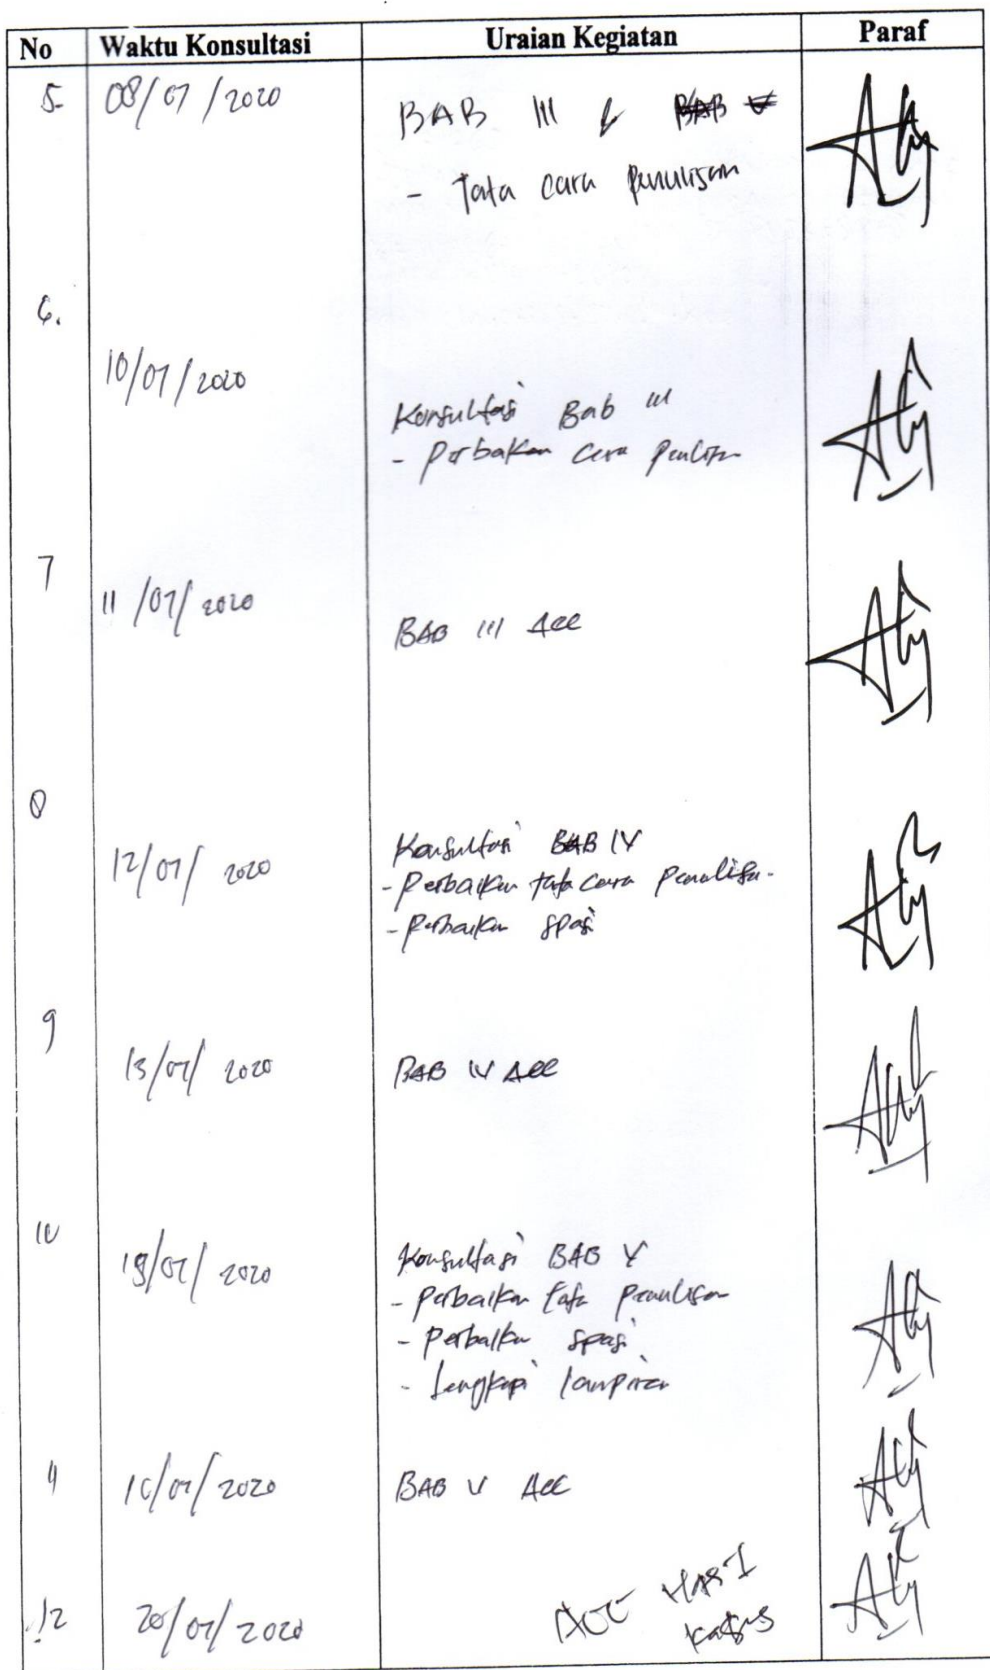 No Waktu Konsultasi Uraian Kegiatan Paraf
5. 08/07/2020 BAB III & BAB V
- Tata cara penulisan
6.
10/07/2020 Konsultasi Bab III
- Perbaikan cara penulisan
7
11/07/2020 BAB III Acc
8
12/07/2020 Konsultasi BAB IV
- Perbaikan tata cara penulisan
- Perbaikan spasi
9
13/07/2020 BAB IV Acc
10
/07/2020 Konsultasi BAB V
- Perbaikan tata penulisan
- Perbaikan spasi
- Lengkapi lampiran
11 /07/2020 BAB V Acc
12 20/07/2020 ACC